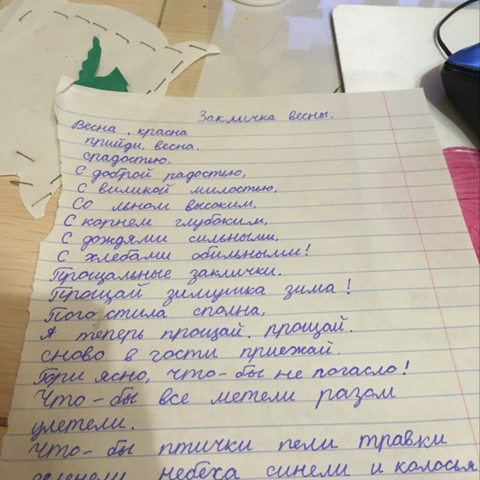 Закличка весны.
Весна, красна
прийди, весна.
срадостью.
С доброй радостью,
С великой милостью,
Со льном высоким,
С корнем глубоким,
С дождями сильными,
С хлебами обильными!
Прощальные заклички.
Прощай зимушка зима!
Погостила сполна,
А теперь прощай, прощай.
сново в гости приежай.
Гори ясно, что-бы не погасло!
Что-бы все метели разом
улетели.
Что-бы птички пели травки
зеленели небеха синели и колосья